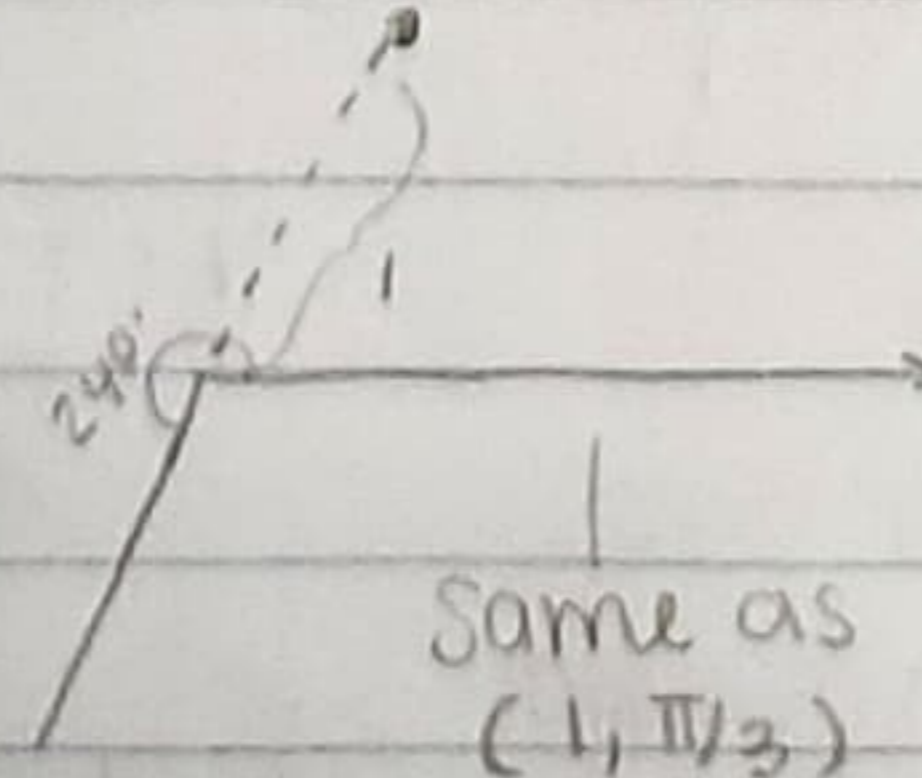 1
240°
Same as
(1, π/3)